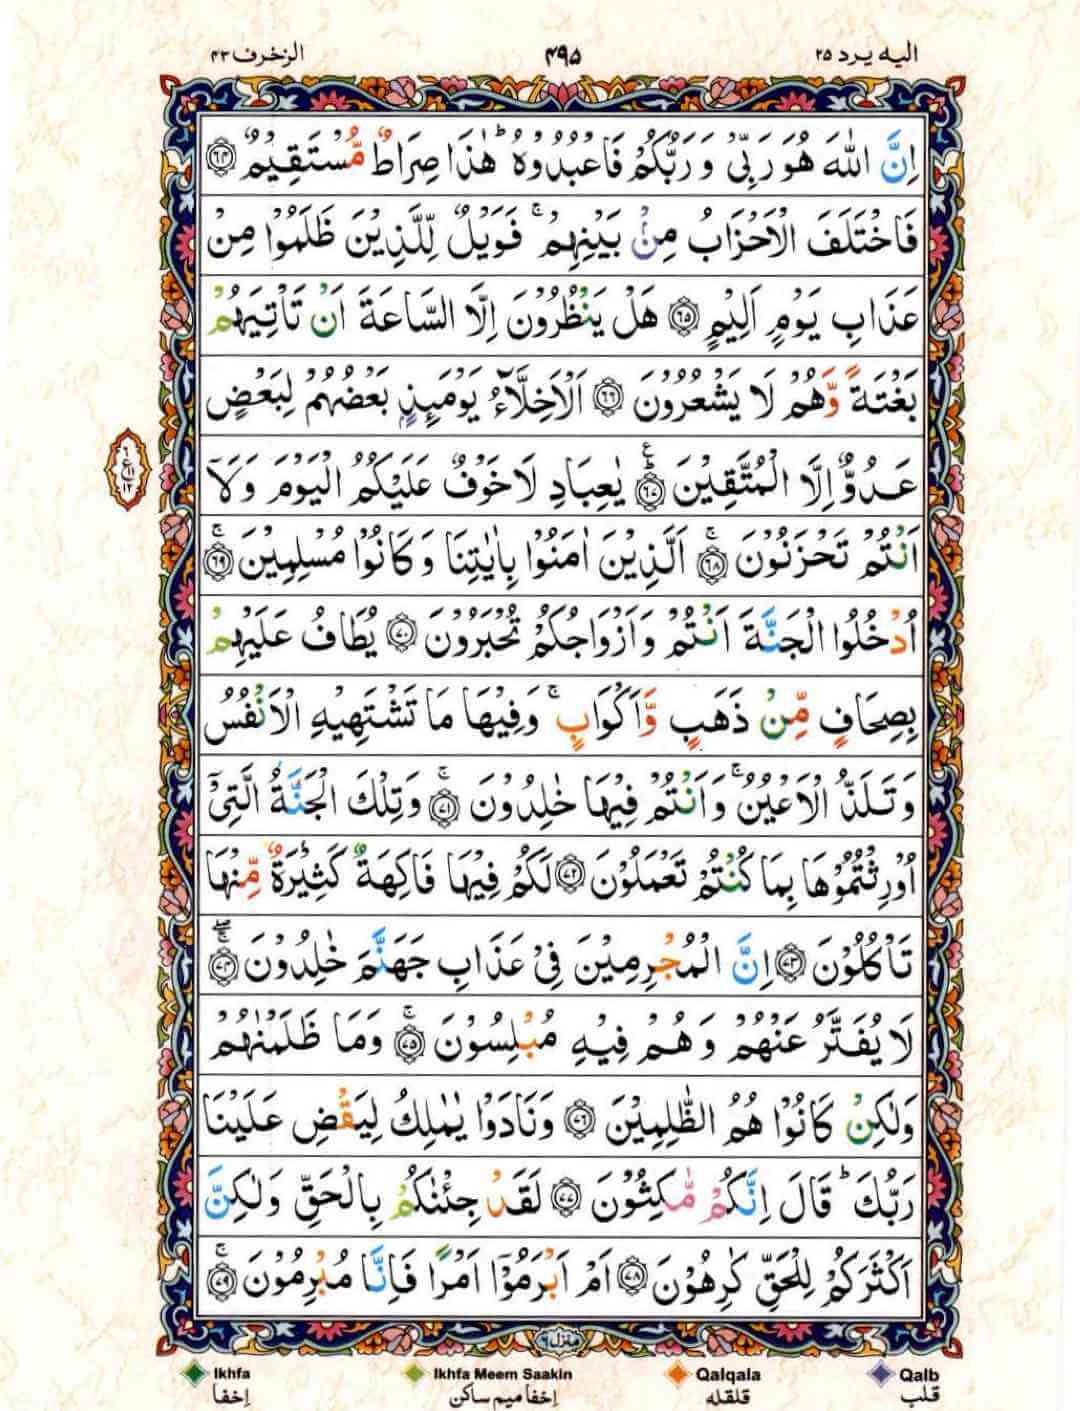 الیه یرد ۲۵
۴۹۵
الزخرف ۴۳
اِنَّ اللّٰهَ هُوَ رَبِّیْ وَ رَبُّكُمْ فَاعْبُدُوْهُ ؕ هٰذَا صِرَاطٌ مُّسْتَقِیْمٌ ﴿۶۴﴾
فَاخْتَلَفَ الْاَحْزَابُ مِنْۢ بَیْنِهِمْ ۚ فَوَیْلٌ لِّلَّذِیْنَ ظَلَمُوْا مِنْ
عَذَابِ یَوْمٍ اَلِیْمٍ ﴿۶۵﴾ هَلْ یَنْظُرُوْنَ اِلَّا السَّاعَةَ اَنْ تَاْتِیَهُمْ
بَغْتَةً وَّهُمْ لَا یَشْعُرُوْنَ ﴿۶۶﴾ اَلْاَخِلَّآءُ یَوْمَىِٕذٍۭ بَعْضُهُمْ لِبَعْضٍ
عَدُوٌّ اِلَّا الْمُتَّقِیْنَ ﴿۶۷﴾ؕ۠ یٰعِبَادِ لَا خَوْفٌ عَلَیْكُمُ الْیَوْمَ وَلَاۤ
اَنْتُمْ تَحْزَنُوْنَ ﴿۶۸﴾ۚ اَلَّذِیْنَ اٰمَنُوْا بِاٰیٰتِنَا وَ كَانُوْا مُسْلِمِیْنَ ﴿۶۹﴾ۚ
اُدْخُلُوا الْجَنَّةَ اَنْتُمْ وَ اَزْوَاجُكُمْ تُحْبَرُوْنَ ﴿۷۰﴾ یُطَافُ عَلَیْهِمْ
بِصِحَافٍ مِّنْ ذَهَبٍ وَّ اَكْوَابٍ ۚ وَ فِیْهَا مَا تَشْتَهِیْهِ الْاَنْفُسُ
وَ تَلَذُّ الْاَعْیُنُ ۚ وَ اَنْتُمْ فِیْهَا خٰلِدُوْنَ ﴿۷۱﴾ۚ وَ تِلْكَ الْجَنَّةُ الَّتِیْۤ
اُوْرِثْتُمُوْهَا بِمَا كُنْتُمْ تَعْمَلُوْنَ ﴿۷۲﴾ لَكُمْ فِیْهَا فَاكِهَةٌ كَثِیْرَةٌ مِّنْهَا
تَاْكُلُوْنَ ﴿۷۳﴾ اِنَّ الْمُجْرِمِیْنَ فِیْ عَذَابِ جَهَنَّمَ خٰلِدُوْنَ ﴿۷۴﴾ۚۖ
لَا یُفَتَّرُ عَنْهُمْ وَ هُمْ فِیْهِ مُبْلِسُوْنَ ﴿۷۵﴾ۚ وَمَا ظَلَمْنٰهُمْ
وَلٰكِنْ كَانُوْا هُمُ الظّٰلِمِیْنَ ﴿۷۶﴾ وَنَادَوْا یٰمٰلِكُ لِیَقْضِ عَلَیْنَا
رَبُّكَ ؕ قَالَ اِنَّكُمْ مّٰكِثُوْنَ ﴿۷۷﴾ لَقَدْ جِئْنٰكُمْ بِالْحَقِّ وَلٰكِنَّ
اَكْثَرَكُمْ لِلْحَقِّ كٰرِهُوْنَ ﴿۷۸﴾ اَمْ اَبْرَمُوْۤا اَمْرًا فَاِنَّا مُبْرِمُوْنَ ﴿۷۹﴾ۚ
۶
ع
۱۱
۱۲
منزل ۶
Ikhfa
Ikhfa Meem Saakin
Qalqala
Qalb
إخفا
إخفا ميم ساكن
قلقله
قلب